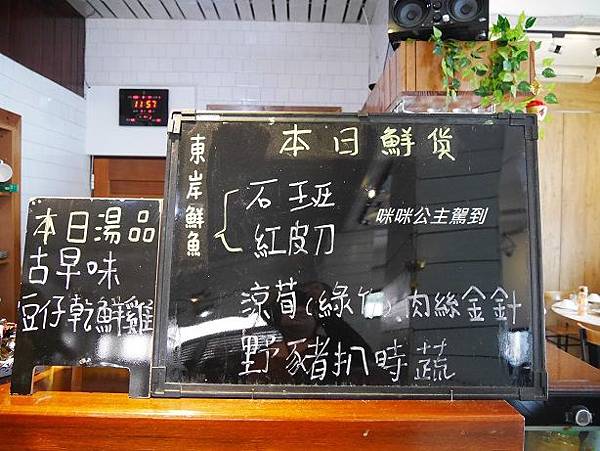 11:57
本日鮮貨
東岸鮮魚
石班
紅皮刀
咪咪公主駕到
涼荀(綠竹).肉絲金針
野豬扒時蔬
本日湯品
古早味
豆仔乾鮮雞